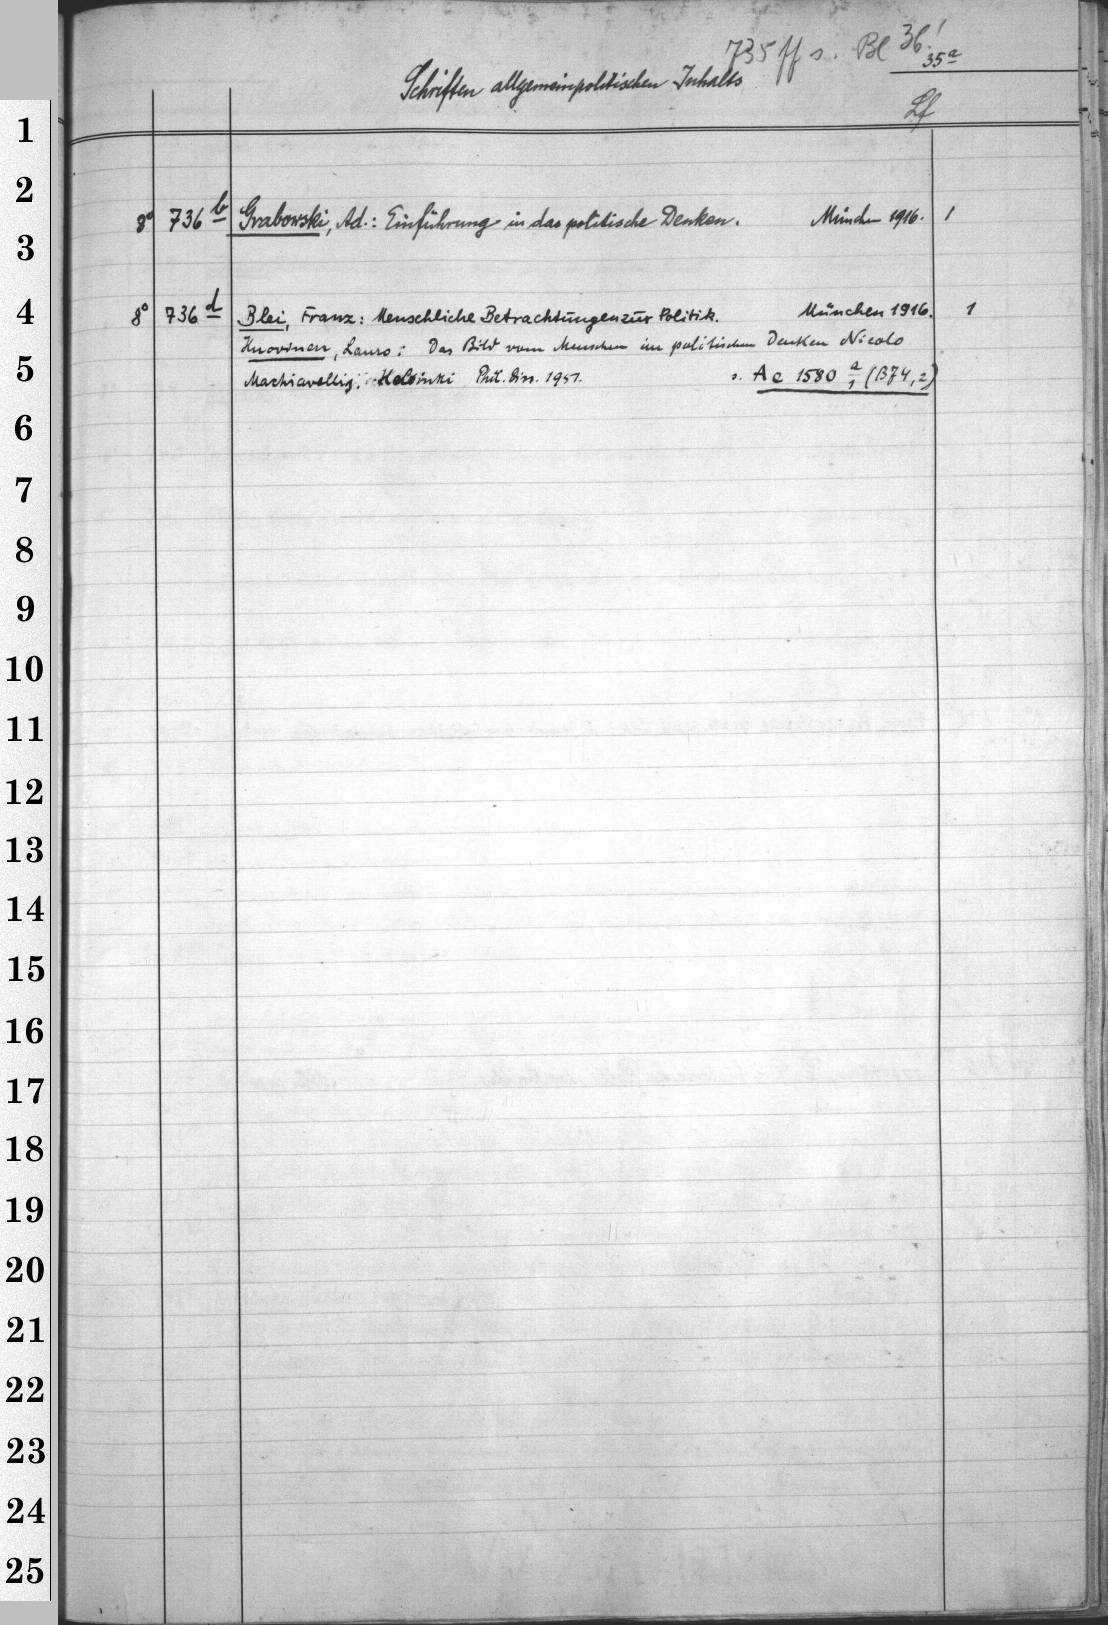 735 ff s. Bl 36!
35a
Schriften allgemeinpolitischen Inhalts
Lf
1
2
8° 736 b Grabowski, Ad.: Einführung in das politische Denken. München 1916. 1
3
4 8° 736 d Blei, Franz: Menschliche Betrachtungen zur Politik. München 1916. 1
Huovinen, Lauro: Das Bild vom Menschen im politischen Denken Nicolo
5 Machiavellis. Helsinki Phil. Diss. 1951. s. Ac 1580 a/1 (B74,2)
6
7
8
9
10
11
12
13
14
15
16
17
18
19
20
21
22
23
24
25